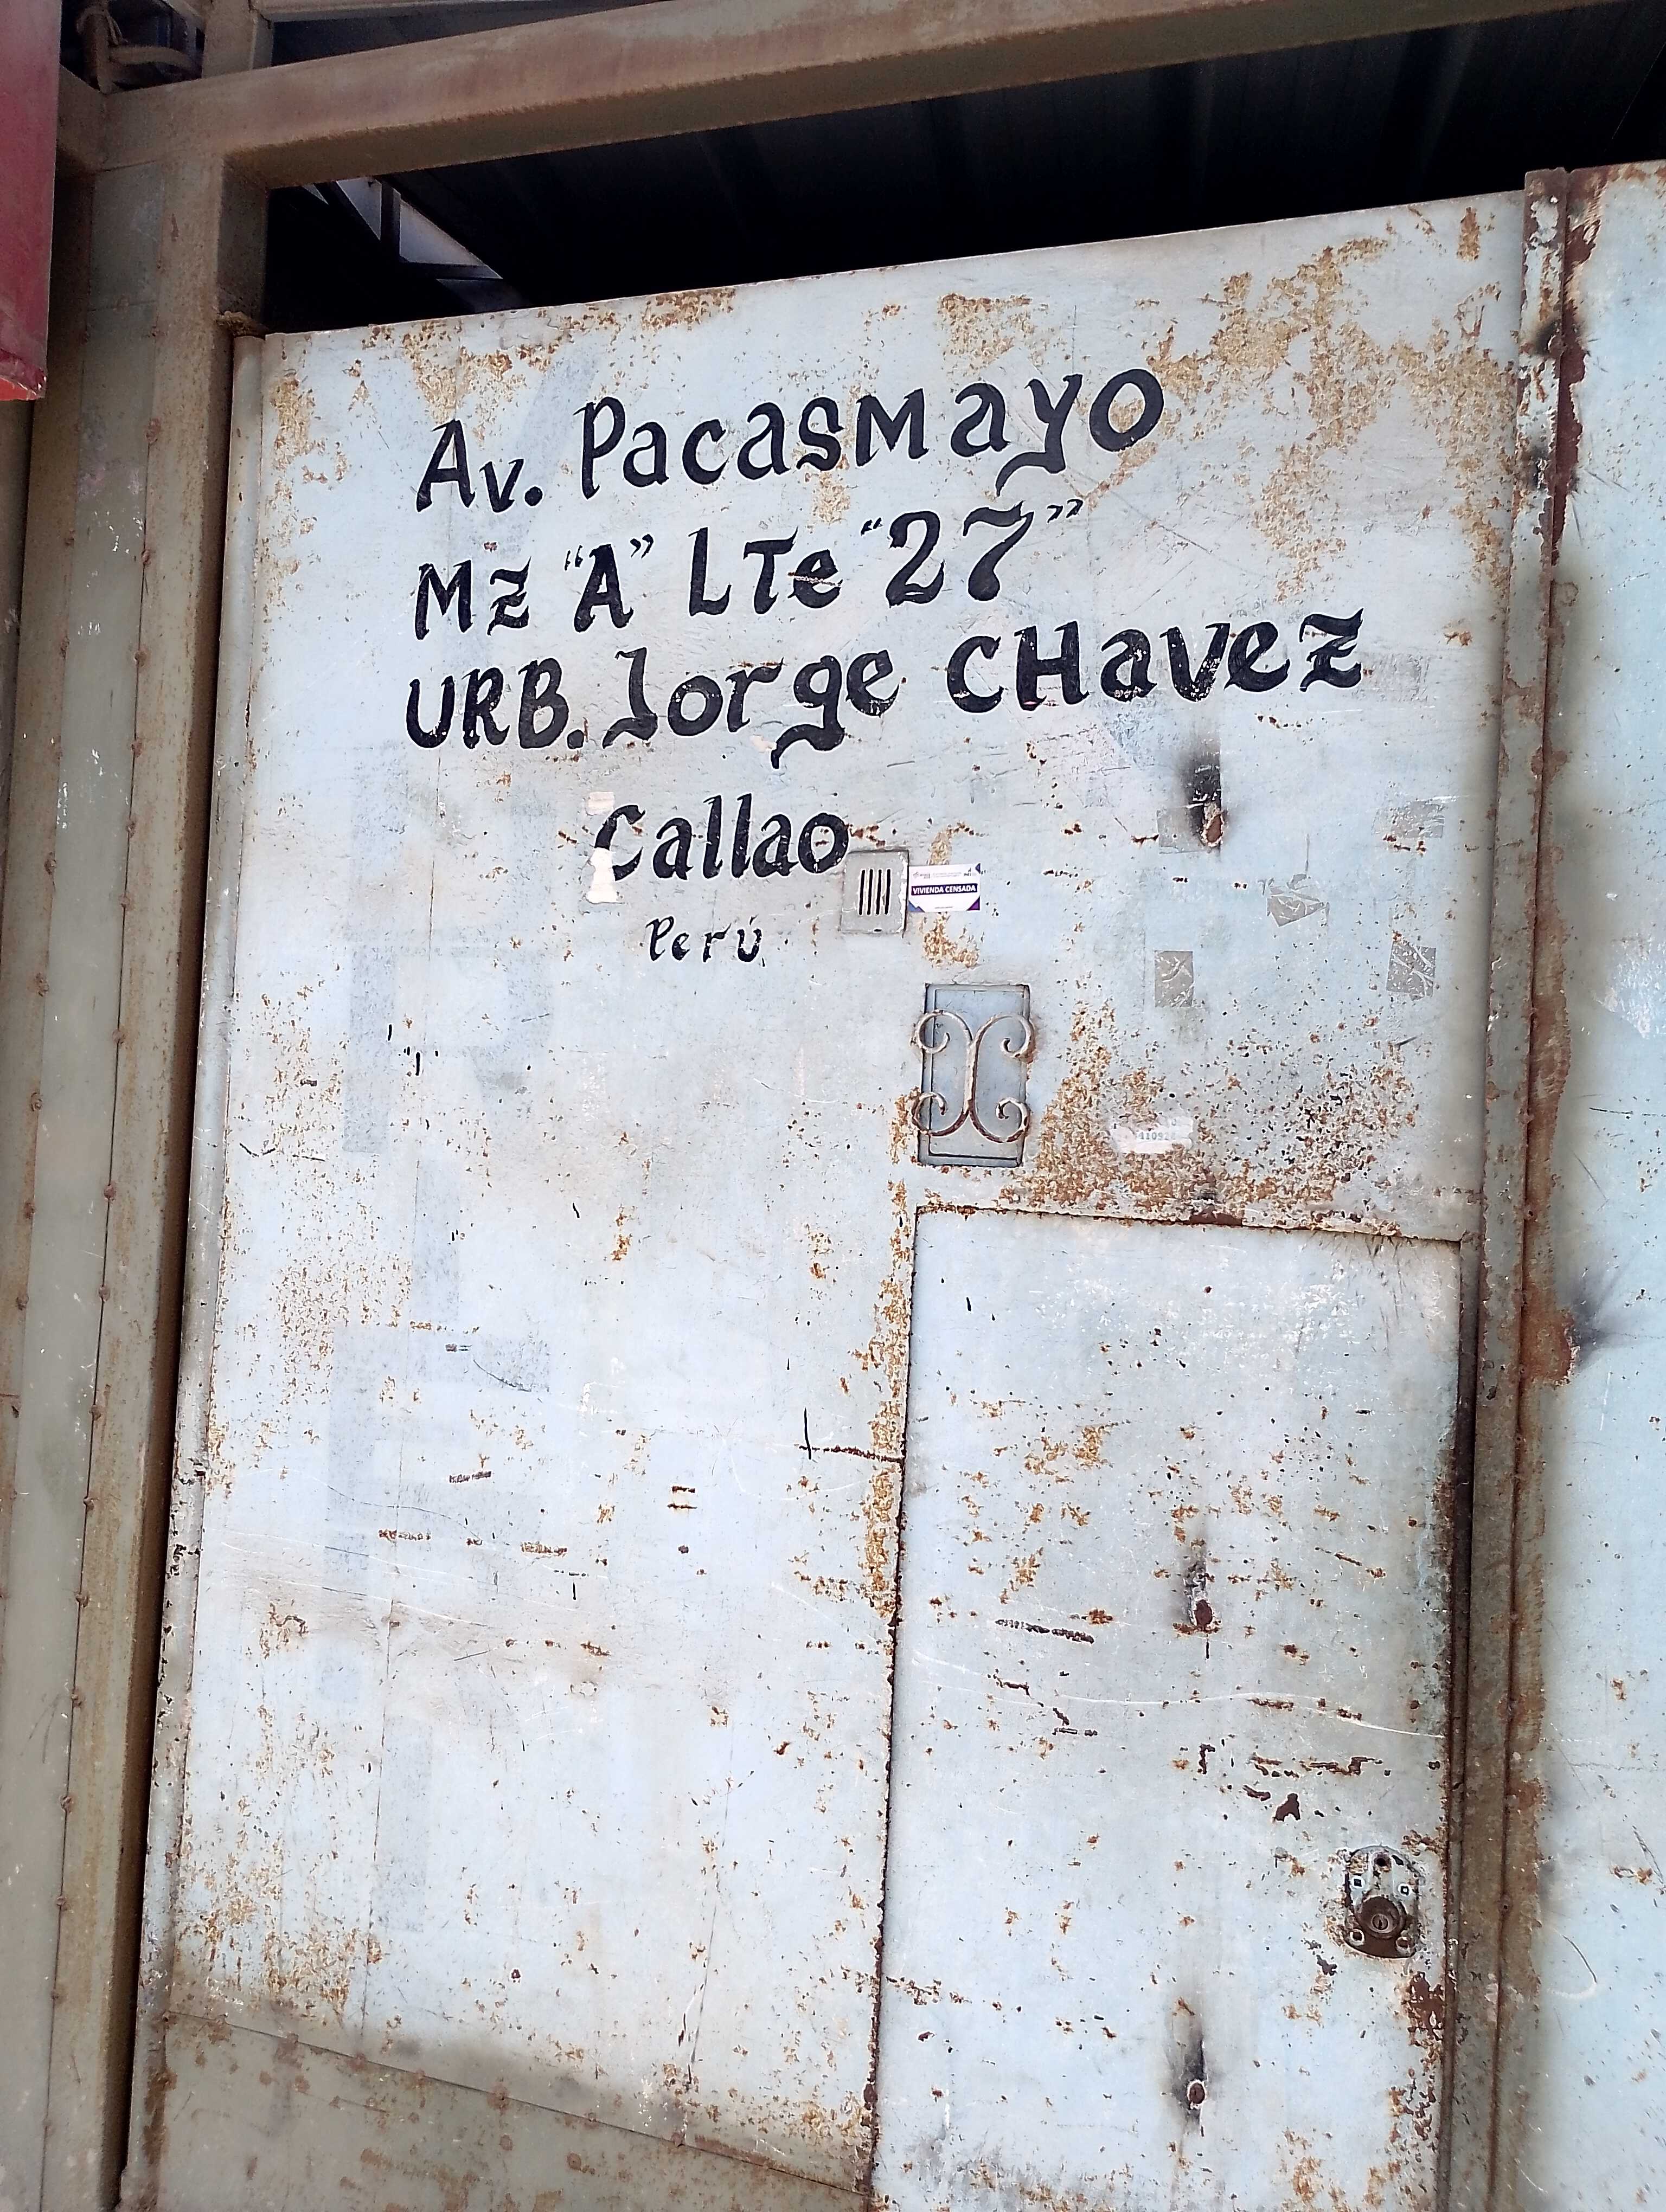 Av. Pacasmayo
MZ "A" LTe "27"
URB. Jorge CHavez
Callao
Perú
VIVIENDA CENSADA